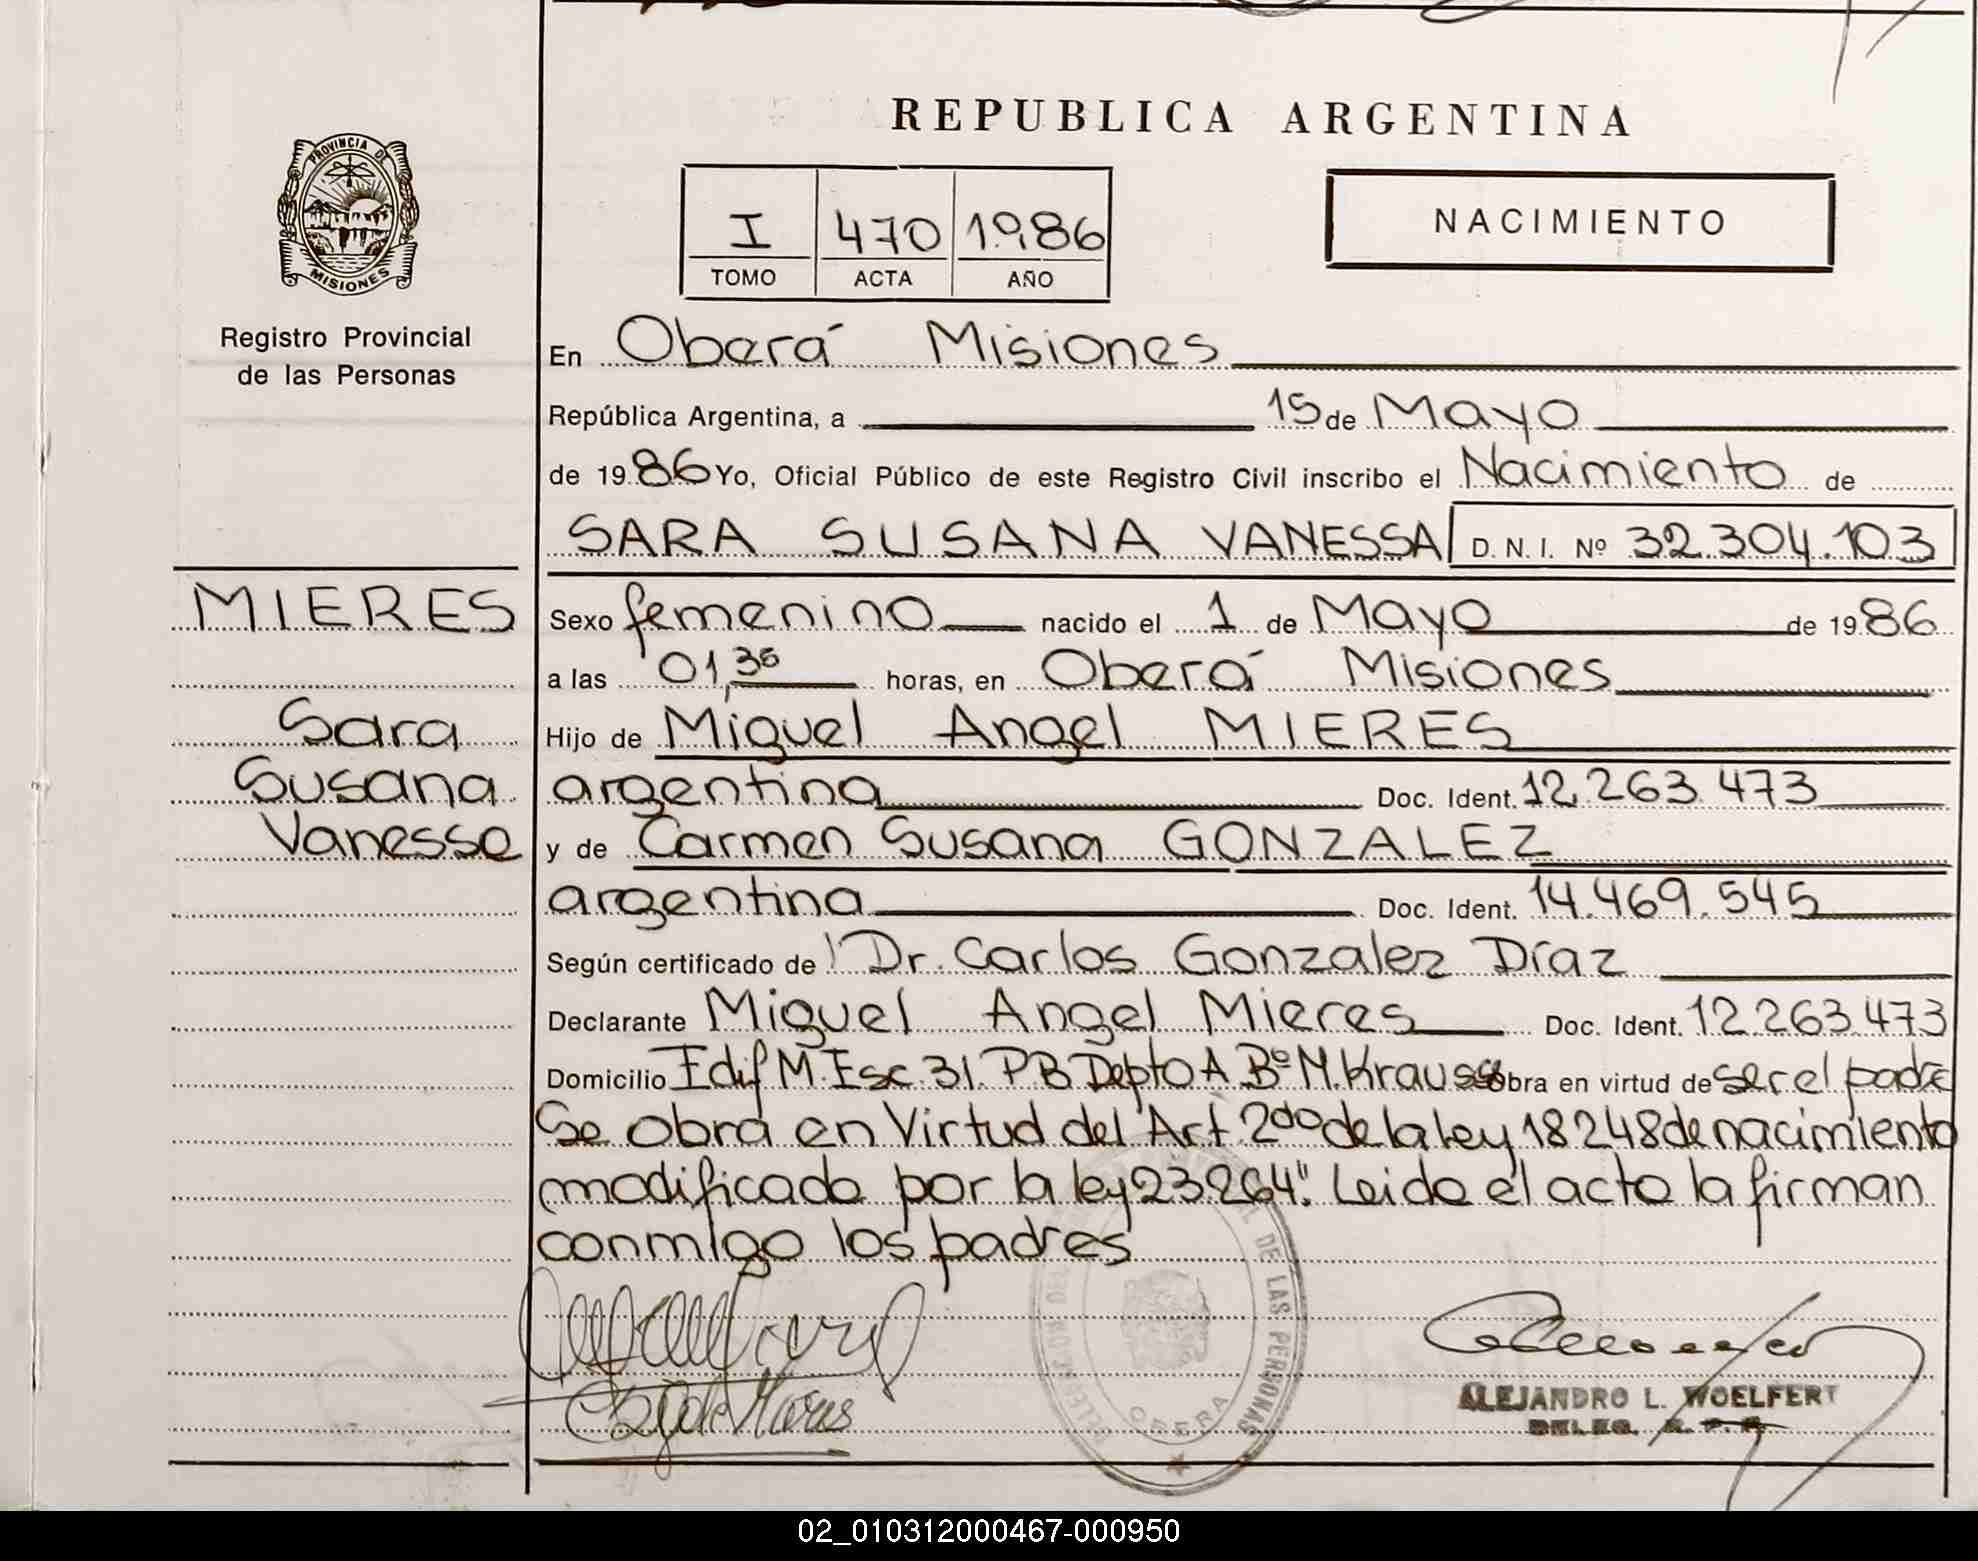 REPUBLICA ARGENTINA
PROVINCIA DE
MISIONES
Registro Provincial
de las Personas
I 470 1.986
TOMO ACTA AÑO
NACIMIENTO
En Oberá Misiones
República Argentina, a 15 de Mayo
de 1986 Yo, Oficial Público de este Registro Civil inscribo el Nacimiento de
SARA SUSANA VANESSA D. N. I. Nº 32.304.103
MIERES
Sara
Susana
Vanessa
Sexo femenino nacido el 1 de Mayo de 1986
a las 01,35 horas, en Oberá Misiones
Hijo de Miguel Angel MIERES
argentina Doc. Ident. 12.263.473
y de Carmen Susana GONZALEZ
argentina Doc. Ident. 14.469.545
Según certificado de Dr. Carlos Gonzalez Díaz
Declarante Miguel Angel Mieres Doc. Ident. 12.263.473
Domicilio Edif M. Esc. 31. PB Depto A Bº M. Krauss Obra en virtud de ser el padre
Se obra en Virtud del Art 2do de la ley 18248 de nacimiento
modificado por la ley 23.264". Leido el acto la firman
conmigo los padres
DE LAS PERSONAS
OBERA
ALEJANDRO L. WOELFERT
DELEG. R. P. P.
02_010312000467-000950